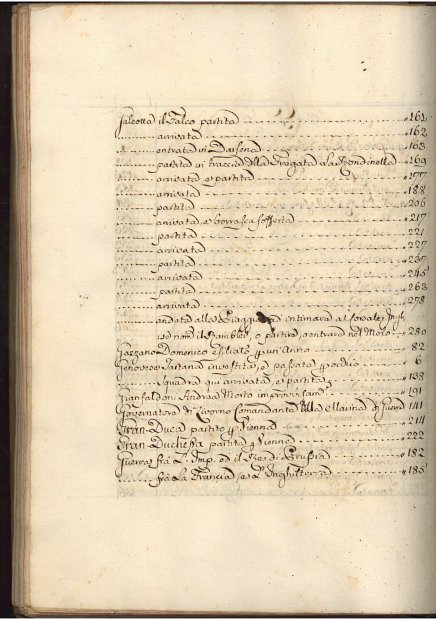 Galeotta il Falco partita " 161
arrivata " 162
entrata in Darsena " 165
partita in traccia della Fregata la Rondinella " 169
arrivata e partita " 177
arrivata " 188
partita " 206
arrivata e borrasca sofferta " 217
partita " 221
arrivata " 227
partita " 237
arrivata " 245
partita " 263
arrivata " 278
andata alla ad intimare al Ingl.
se nom. il o partire, o entrare nel Molo " 280
Gazzano Domenico esiliato p un' Anno " 82
Genovese Tartana investita, e passata p occhio " 6
Squadra qui arrivata e partita " 138
Gianfaldoni Andrea Morto improvisam. " 191
Governatore di Livorno Comandante della Marina di Guerra " 141
Gran-Duca partito p Vienna " 214
Gran-Duchessa partita p Vienna " 222
Guerra frà L'Imp. ed il Re di Prussia " 182
frà La Francia, e L'Inghilterra " 185